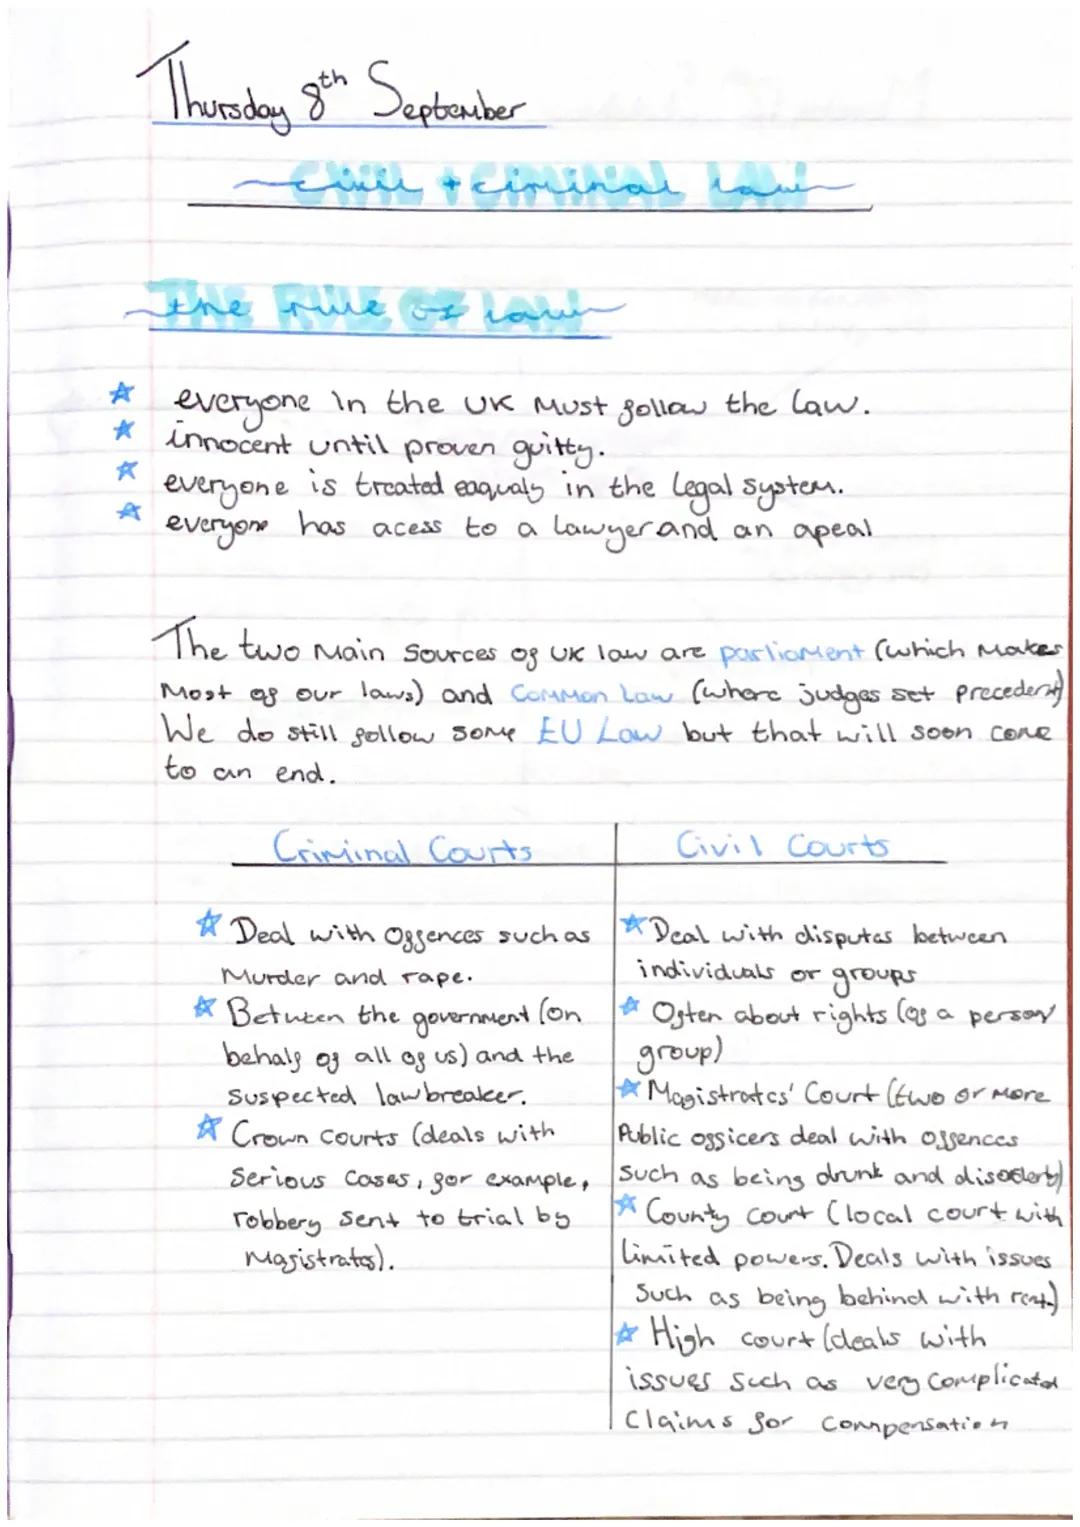 Thursday 8th September
civil + ciminal law
the rule of law
☆ everyone in the UK must follow the law.
☆ innocent until proven guitty.
☆ everyone is treated eaqualy in the legal system.
☆ everyone has acess to a lawyer and an apeal
The two main sources of UK law are parliament (which makes
most of our laws) and Common Law (where judges set precedent)
We do still follow some EU Law but that will soon come
to an end.
Criminal Courts
☆ Deal with offences such as
murder and rape.
☆ Between the government (on
behalf of all of us) and the
suspected lawbreaker.
☆ Crown courts (deals with
serious cases, for example,
robbery sent to trial by
magistrates).
Civil Courts
☆ Deal with disputes between
individuals or groups
☆ Often about rights (of a person/
group)
☆ Magistrates' Court (two or more
Public officers deal with offences
such as being drunk and disorderly)
☆ County court (local court with
limited powers. Deals with issues
such as being behind with rent.)
☆ High court (deals with
issues such as very complicated
claims for compensation